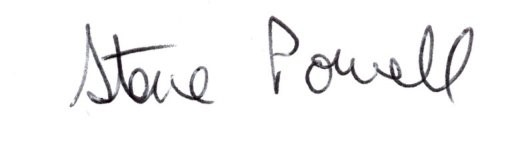 Steve Powell